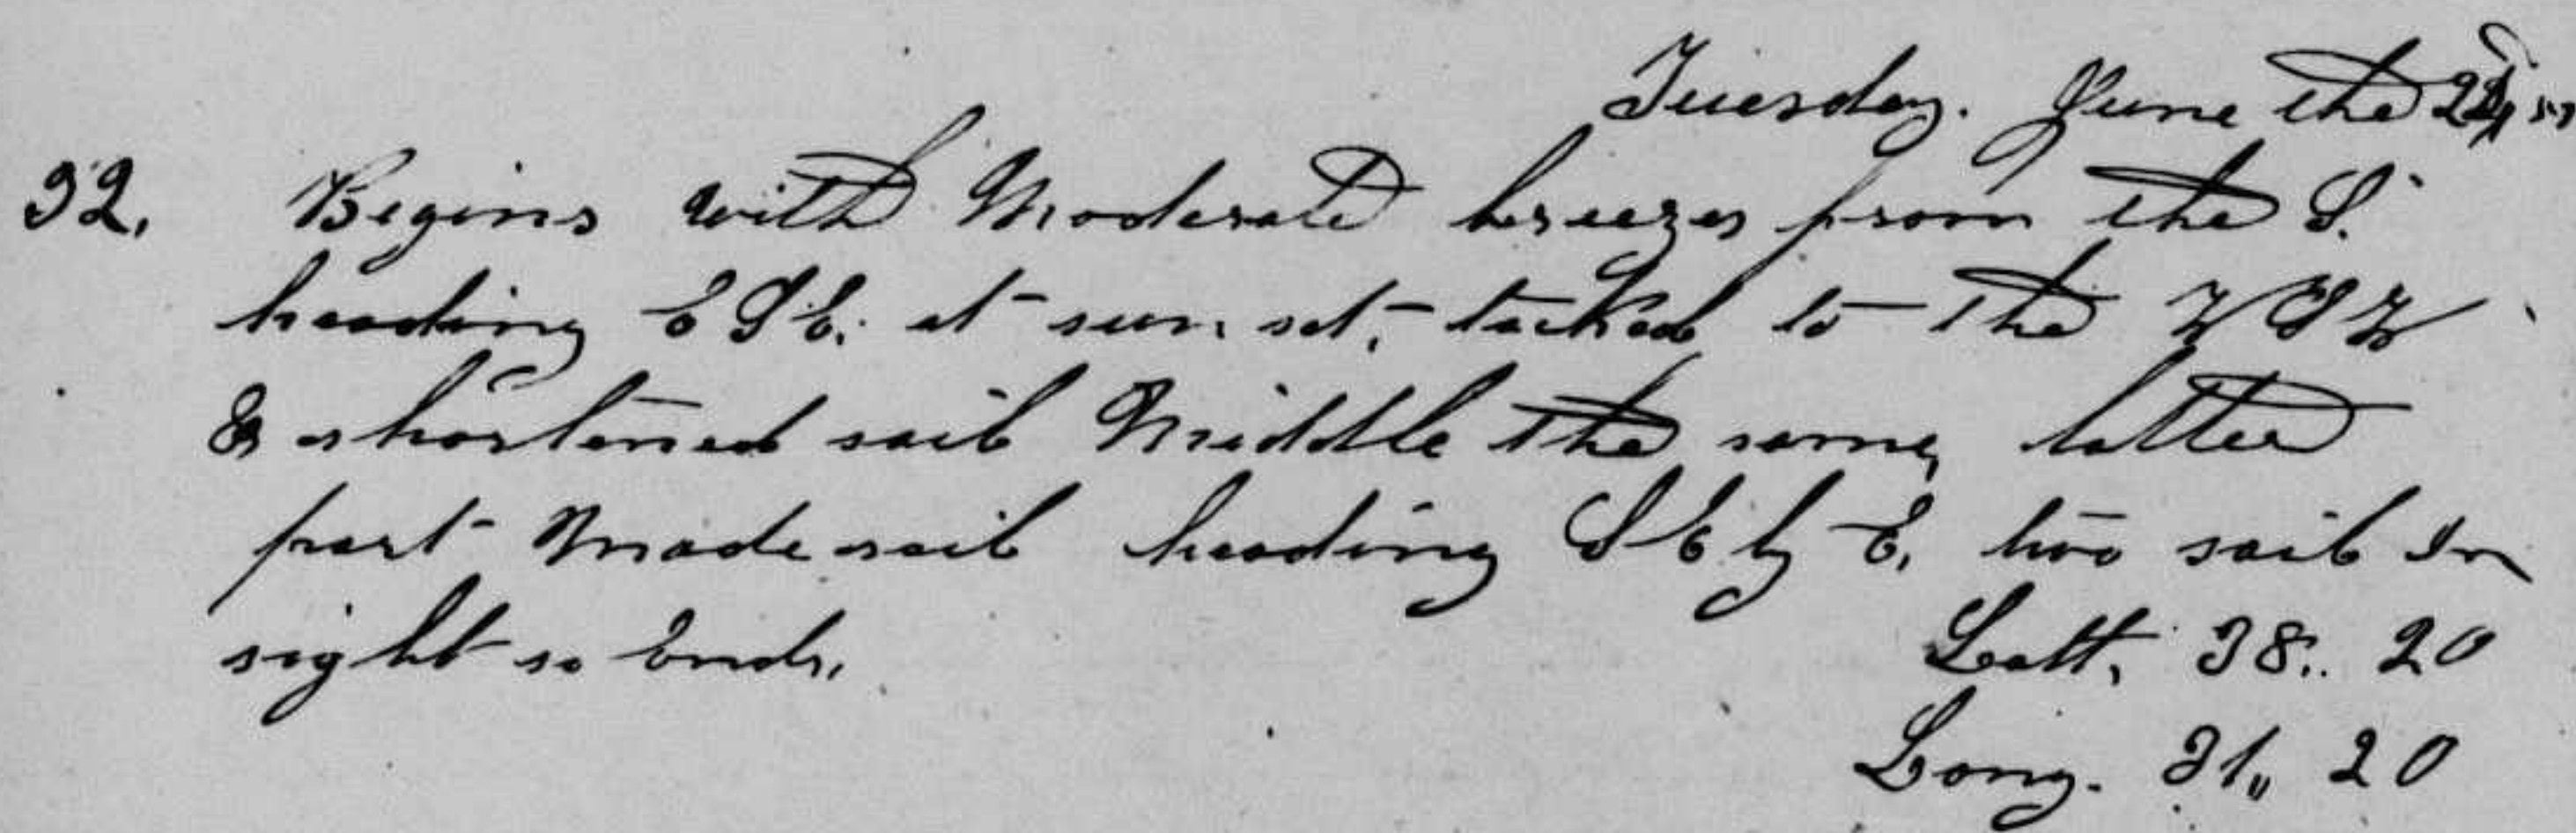 Tuesday. June the
32. Begins with Moderate breezes from the S.
heading E S E. at sun set, tacked to the W S W
& shortened sail Middle the same, latter
part Made sail heading S E by E, two sail In
sight so Ends,
Latt, 38.. 20
Long. 31,, 20